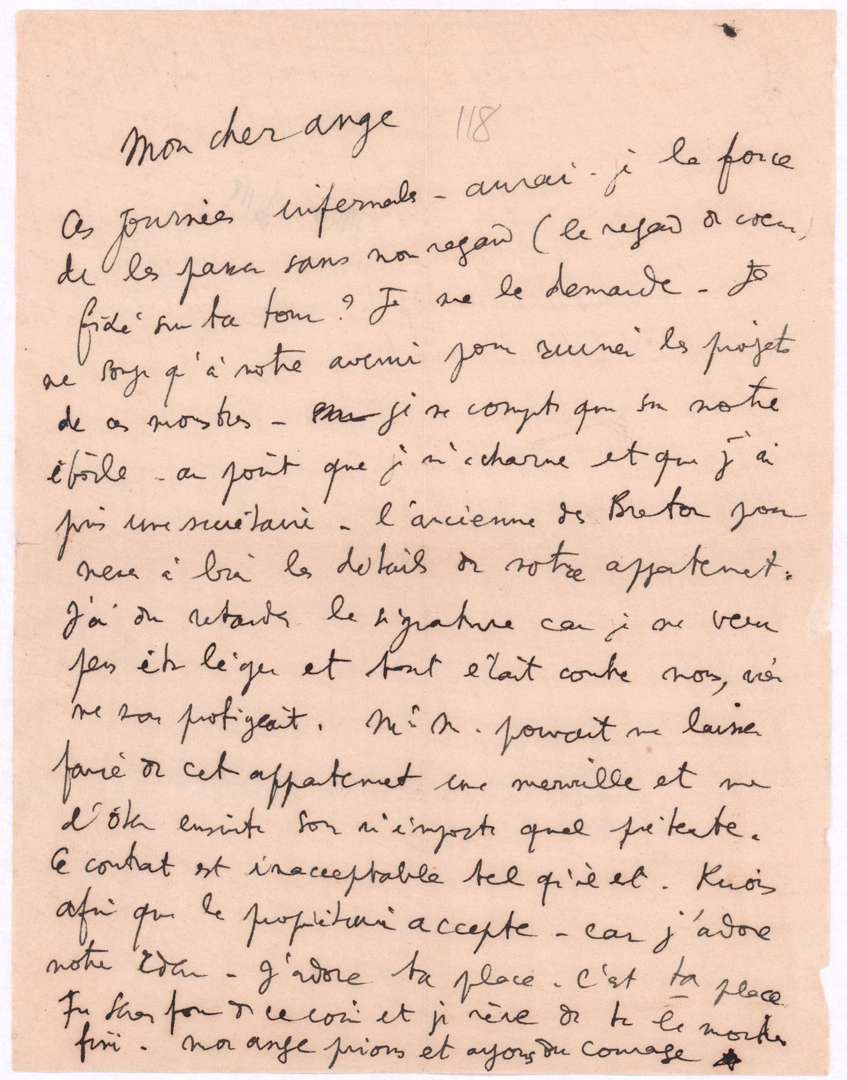 Mon cher ange 118
Ces journées infernales - aurai-je la force
de les passer sans mon regard (le regard du coeur)
fixé sur ta tour? Je me le demande - Je
ne songe qu'à notre avenir pour ruiner les projets
de ces monstres - je ne compte que sur notre
étoile - au point que je m'acharne et que j'ai
pris une secrétaire - l'ancienne de Breton pour
mener à bien les détails de notre appartement.
J'ai du retarder la signature car je ne veux
pas être léger et tout était contre nous, rien
ne nous protégeait. Mr M. pouvait me laisser
faire de cet appartement une merveille et me
l'ôter ensuite sous n'importe quel prétexte.
Ce contrat est inacceptable tel qu'il est.
afin que le propriétaire accepte - car j'adore
notre Eden - J'adore ta place. C'est ta place
Tu seras fou de ce coin et je rêve de te le montrer
fini. Mon ange prions et ayons du courage